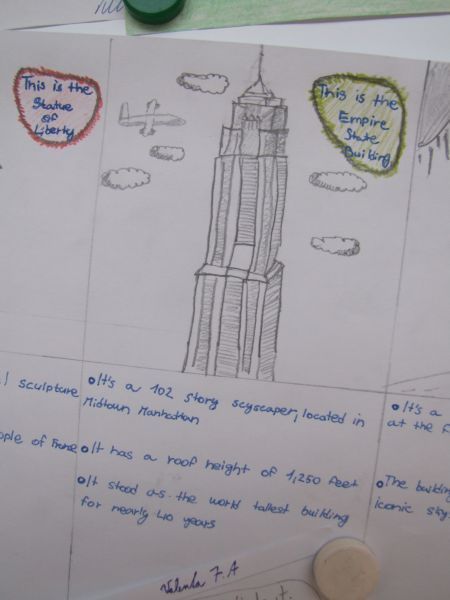 This is the
Statue
of
Liberty
This is the
Empire
State
Building
l sculpture
ople of France
•It's a 102 story scyscaper, located in
Midtown Manhattan
•It has a roof height of 1,250 feet
•It stood as the world tallest building
for nearly 40 years
•It's a
at the
•The building
iconic sky
7.A